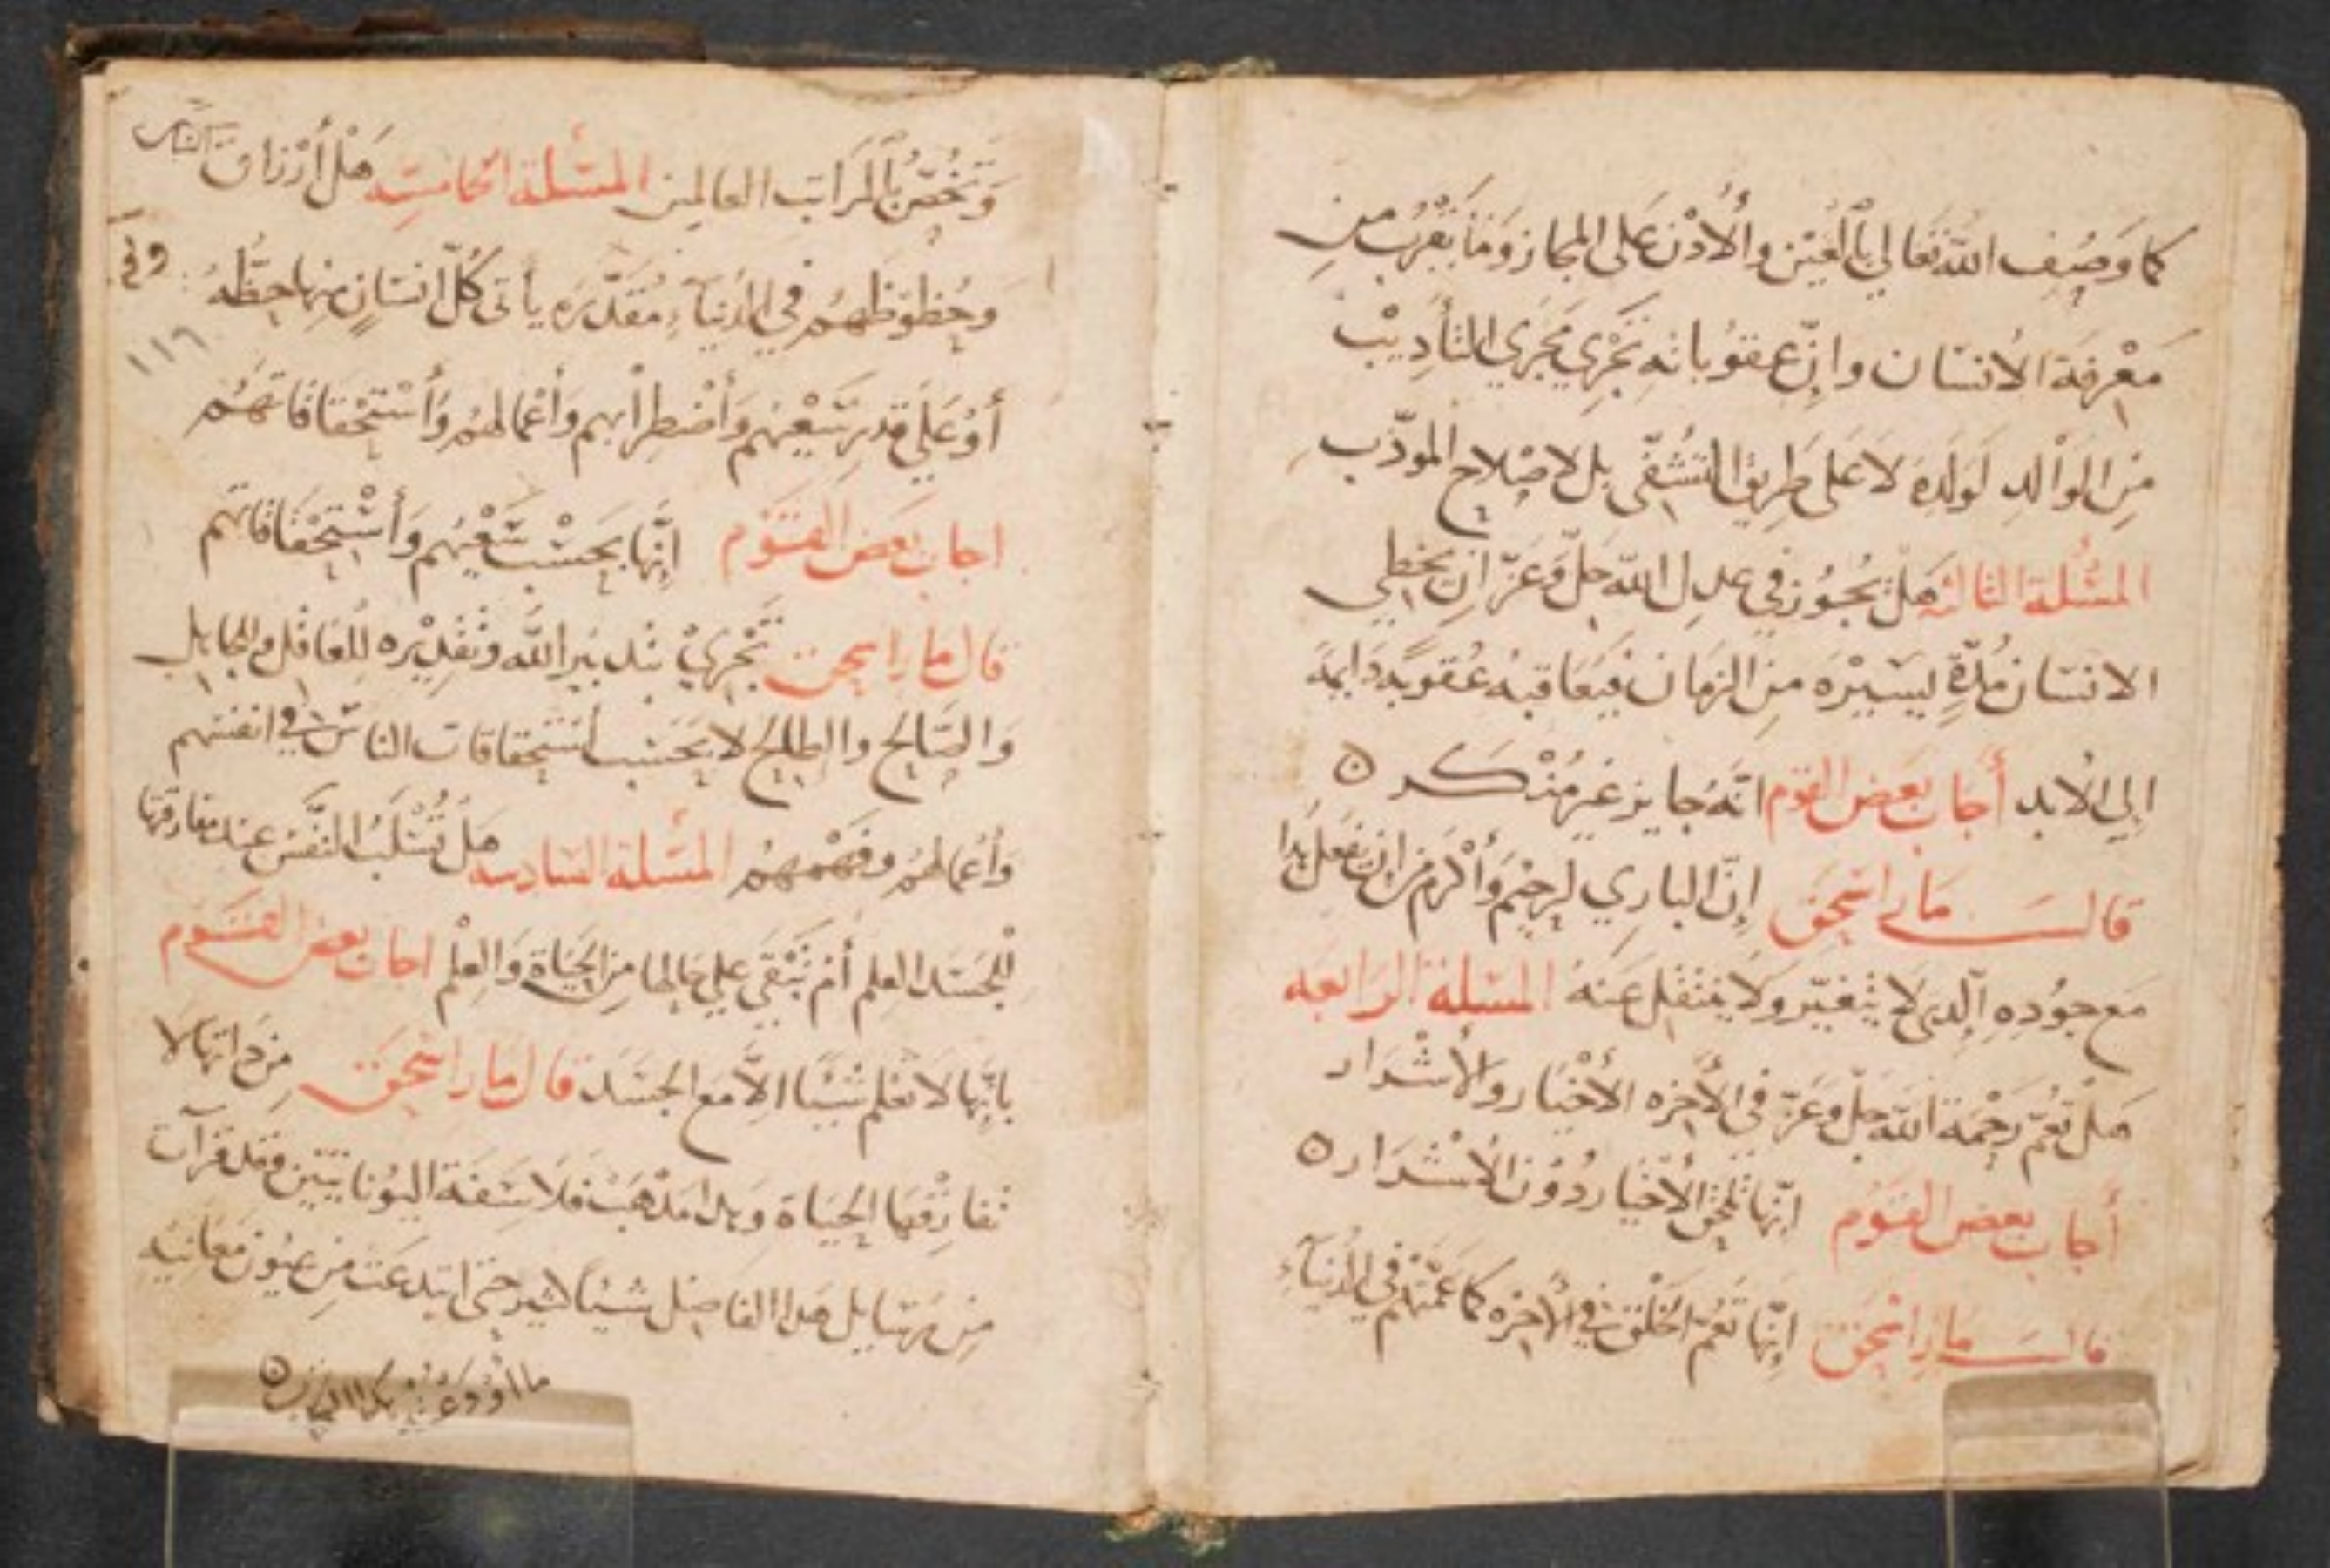 كما وَصِف اللّه تعالي بالعَيْن والأُذْن عَلى المجاز وَمَا يَقْرُب من
مَعْرفَة الانسَان وانّ عقوباته تَجْري مَجْرَي التأدِيْب
مِن الوَالدِ لوَلَدِهِ لا عَلى طَرِيق التشفّى بل لاصْلاح المودّب
المسْئلة الثالثه هَلْ يجُوز في عدلِ اللّه جلّ وَعَزّ ان يخطي
الانسَان مُدّةٍ يسَيْرَه مِنَ الزمَان فيعَاقبُه عُقوبةً دَايمَه
اليِ الابد أجَابَ بَعض القوم انّهَ جايز غير مُنْكَر ٥
قال مار اسحَق إنّ الباري لرحِيْم وَأكْرَم مِن ان يَفعَل هذا
مَع جوُدهِ الّذي لا يتْغيّر وَلا ينتقل عَنهُ المسْئلة الرَابعَه
هَلْ تعُمّ رَحْمَة اللّه جلّ وعَزّ فى الأخِره الأخْيَار والأشْرَار
أجَابَ بعض القوَم انّها تَلحق الأخْيَار دُوْن الأشْرَار ٥
قال مار اسحَق انِّها تعُمّ الخَلْق في الأخِرَه كما عمّتهُم في الدُنيآء
وَتخُصّ بالمَراتب العَالمين المسْئلة الخَامسَه هَلْ أرْزَاق الناس
وحُظوَظهُم في الدُنيآء مُقدّرَه يأتى كُلّ انسَانٍ مِنها حظّهُ
١١٦
أوْ عَلَي قدرِ سَعْيهم وَاضْطِرابهم وَأعْمالهُم وَأسْتحْقاقاتهُم
اجاب بَعض القَوْم إنّها بحَسْب سَعْيهُم وَأسْتِحْقاقاتهم
قال مار اسحق تَجْرِيْ بتدبير اللّه وتقْدِيْره للعَاقل والجَاهل
وَالصَالح والطالح لا بحَسَب استحقاقات الناسْ في انفسهم
وَأعمالهُم وفَهْمهُم المسْئلة السَادسه هَلْ تُسْلَبُ النَفْس عند مفارقتها
للجَسَد العِلم أمْ تَبْقَى علي حَالها مِن الحَيَاة وَالعِلْم اجاب بعض القَوم
بانّها لا تعْلَم شيْئًا الاّ مَع الجَسَد قال مار اسحَق مِن ذاتهَا لا
تفارِقْهَا الحَيَاة وَهذا مَذْهَبُ فلاسَفَة اليوُنانيّين وَقد قرَأت
مِن هذا الفاضِل شيْئًا كثير حتى ابتدعَت مِن عيُون مَعَانيْه
ما أوْدَعْتهُ هذا الكتاب ٥